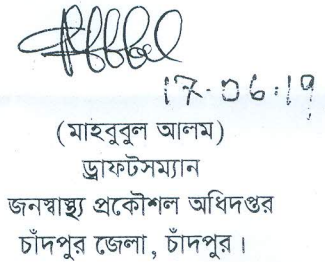 17.06.19
(মাহবুবুল আলম)
ড্রাফটসম্যান
জনস্বাস্থ্য প্রকৌশল অধিদপ্তর
চাঁদপুর জেলা, চাঁদপুর।